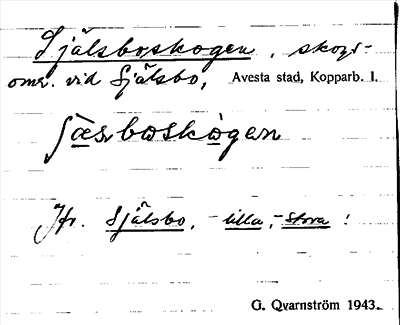 Själsboskogen, skogs-
omr. vid Själsbo, Avesta stad, Kopparb. l.
Jfr. Själsbo, - lilla, - stora!
G. Qvarnström 1943.